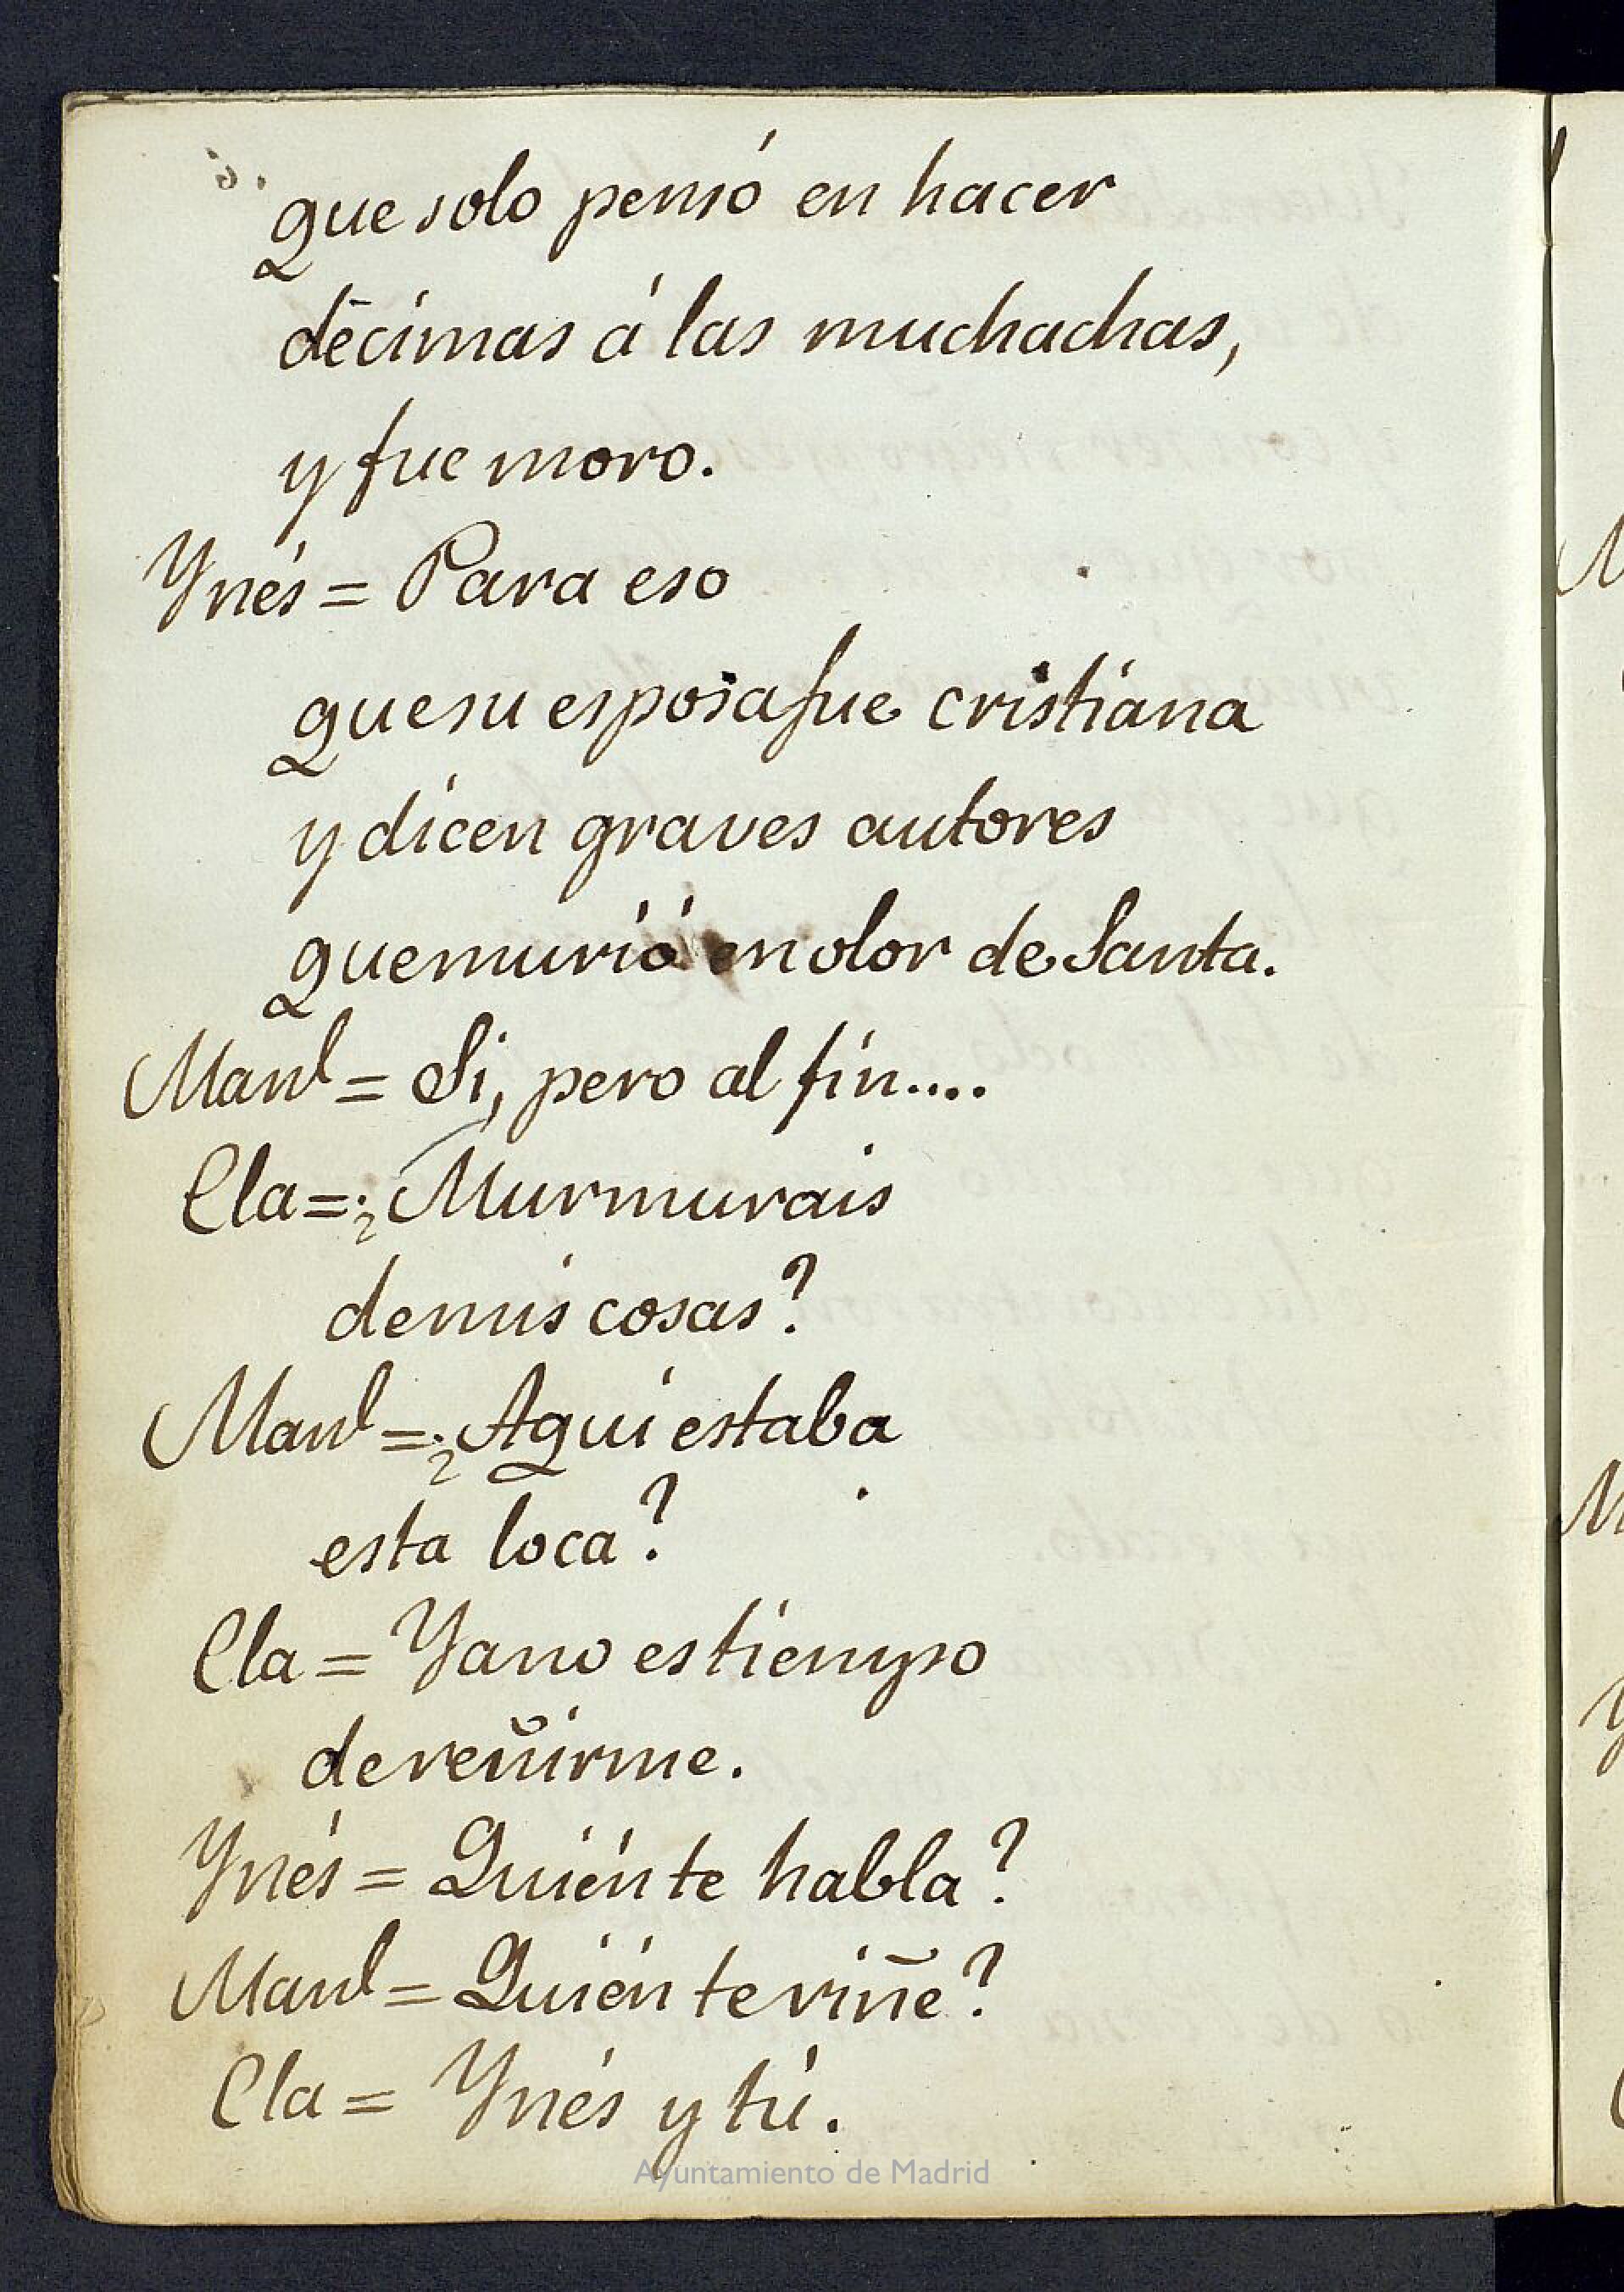 que solo pensó en hacer
décimas á las muchachas,
y fue moro.
Ynés = Para eso
que su esposa fue cristiana
y dicen graves autores
que murió en olor de Santa.
Manl = Si, pero al fin....
Cla = ¿Murmurais
de mis cosas?
Manl = ¿Aqui estaba
esta loca?
Cla = Ya no es tiempo
de reñirme.
Ynés = Quién te habla?
Manl = Quién te riñe?
Cla = Ynés y tú.
Ayuntamiento de Madrid